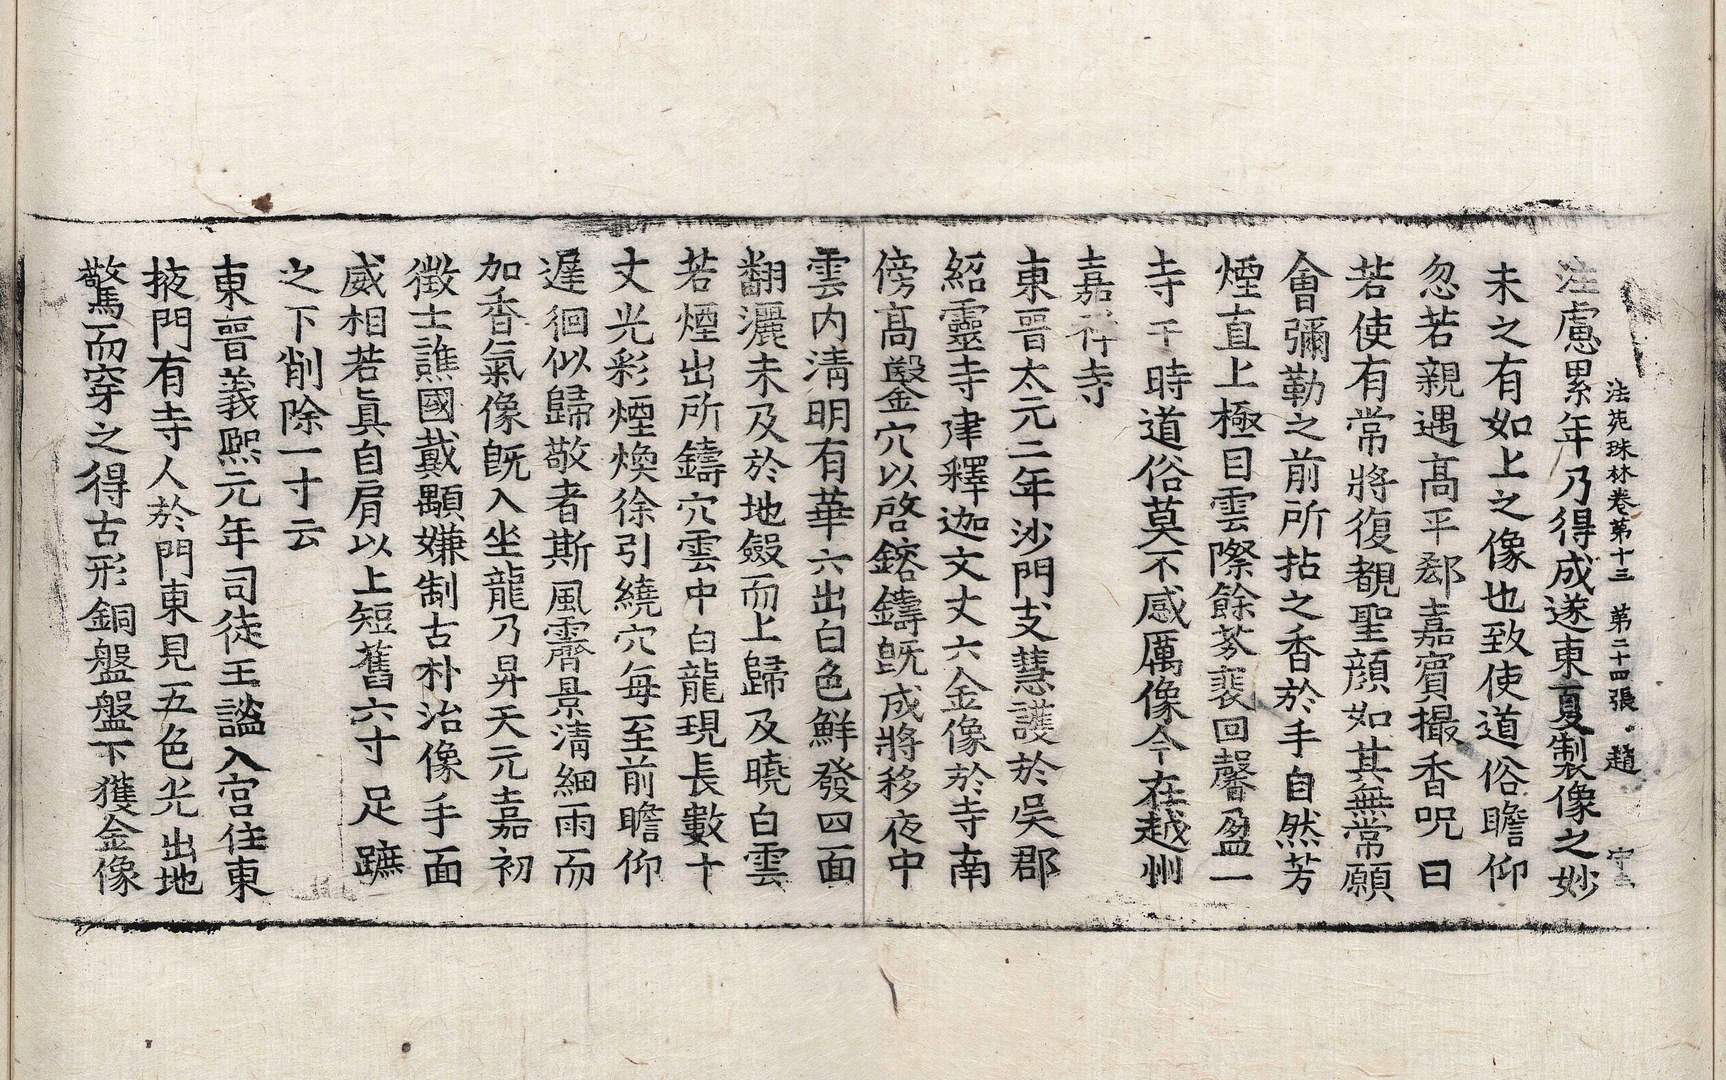 法苑珠林卷第十三　第二十四張　趙　守
注慮累年乃得成遂東夏製像之妙
未之有如上之像也致使道俗瞻仰
忽若親遇高平郄嘉賓撮香呪曰
若使有常將復覩聖顔如其無常願
會彌勒之前所拈之香於手自然芳
煙直上極目雲際餘芬裴回馨盈一
寺于時道俗莫不感厲像今在越州
嘉祥寺
東晉太元二年沙門支慧護於吳郡
紹靈寺建釋迦文丈六金像於寺南
傍髙鑿穴以啓鎔鑄旣成將移夜中
雲内清明有華六出白色鮮發四面
翻灑未及於地斂而上歸及曉白雲
若煙出所鑄穴雲中白龍現長數十
丈光彩煙煥徐引繞穴每至前瞻仰
遲徊似歸敬者斯風霽景清細雨而
加香氣像旣入坐龍乃昇天元嘉初
徵士譙國戴顒嫌制古朴治像手面
威相若真自肩以上短舊六寸足蹠
之下削除一寸云
東晉義熙元年司徒王謐入宫住東
掖門有寺人於門東見五色光出地
驚而穿之得古形銅盤盤下獲金像